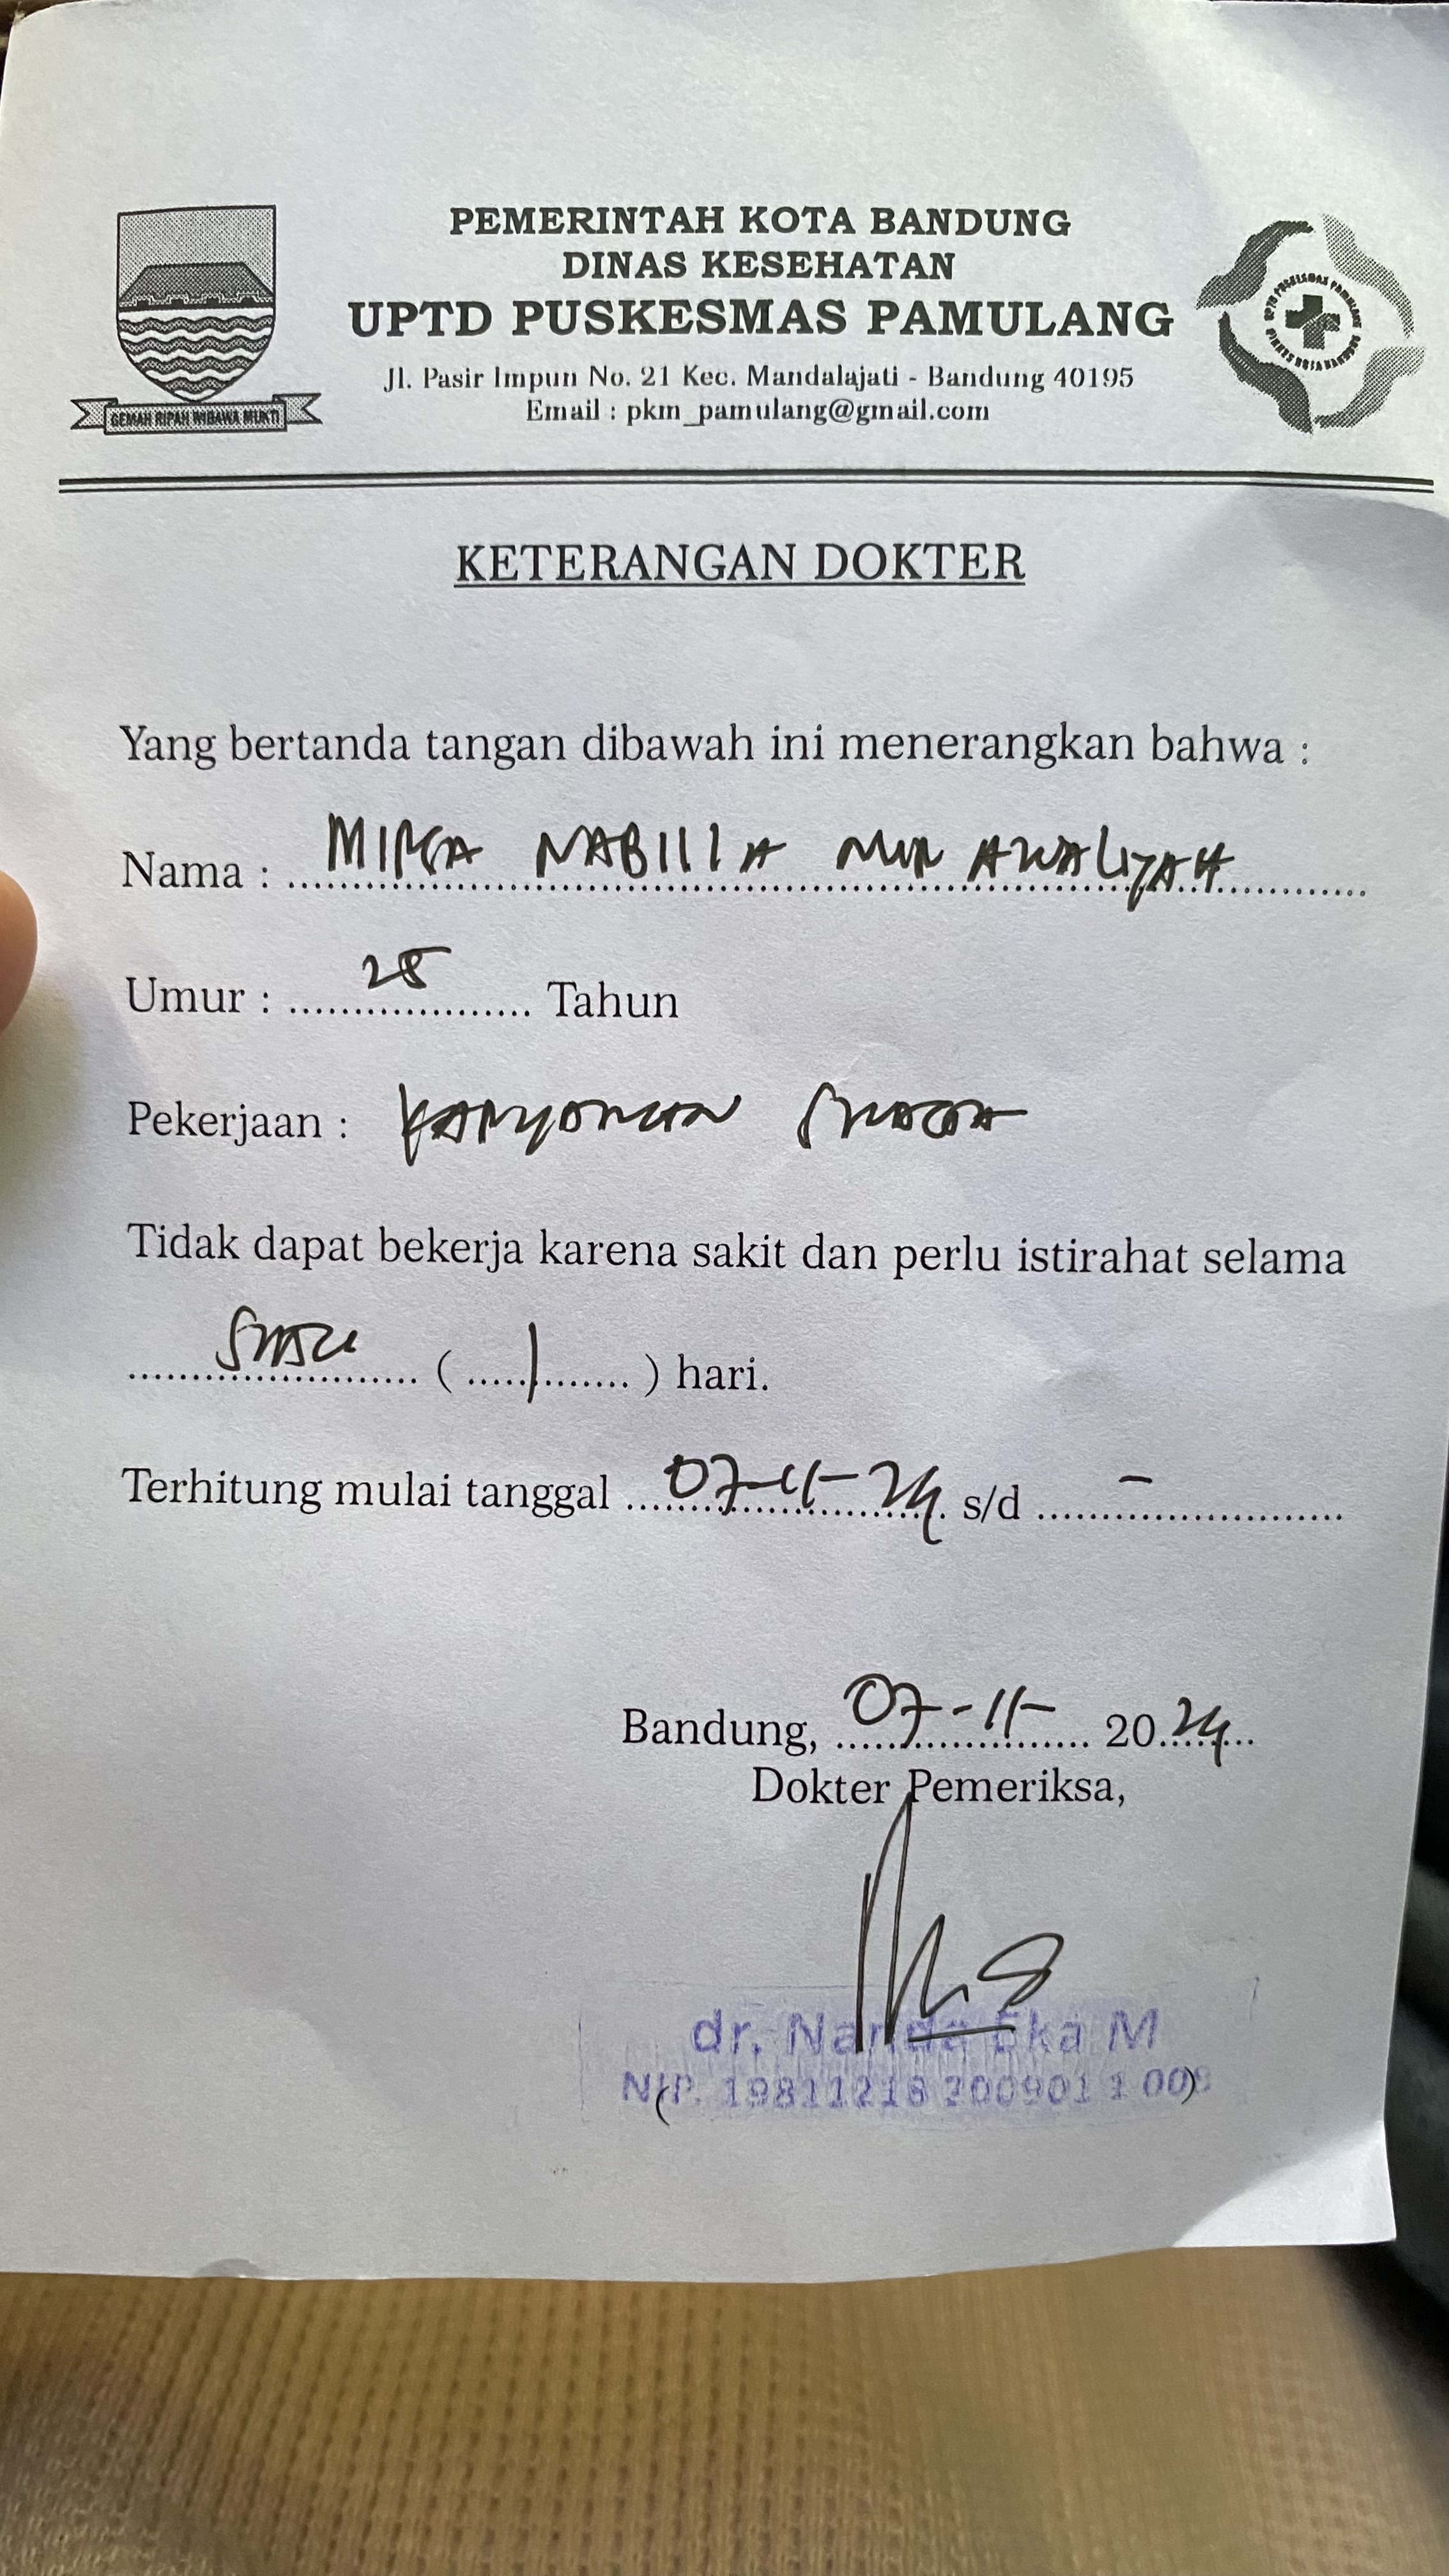 PEMERINTAH KOTA BANDUNG
DINAS KESEHATAN
UPTD PUSKESMAS PAMULANG
Jl. Pasir Impun No. 21 Kec. Mandalajati - Bandung 40195
Email : pkm_pamulang@gmail.com
GEMAH RIPAH WIBAWA MUKTI
KETERANGAN DOKTER
Yang bertanda tangan dibawah ini menerangkan bahwa :
Nama : NABILLA NUR AWALIYAH
Umur : 28 Tahun
Pekerjaan : KARYAWAN SWASTA
Tidak dapat bekerja karena sakit dan perlu istirahat selama
SATU ( 1 ) hari.
Terhitung mulai tanggal 07-11-24 s/d -
Bandung, 07-11- 2024
Dokter Pemeriksa,
dr. Nanda Eka M
NIP.